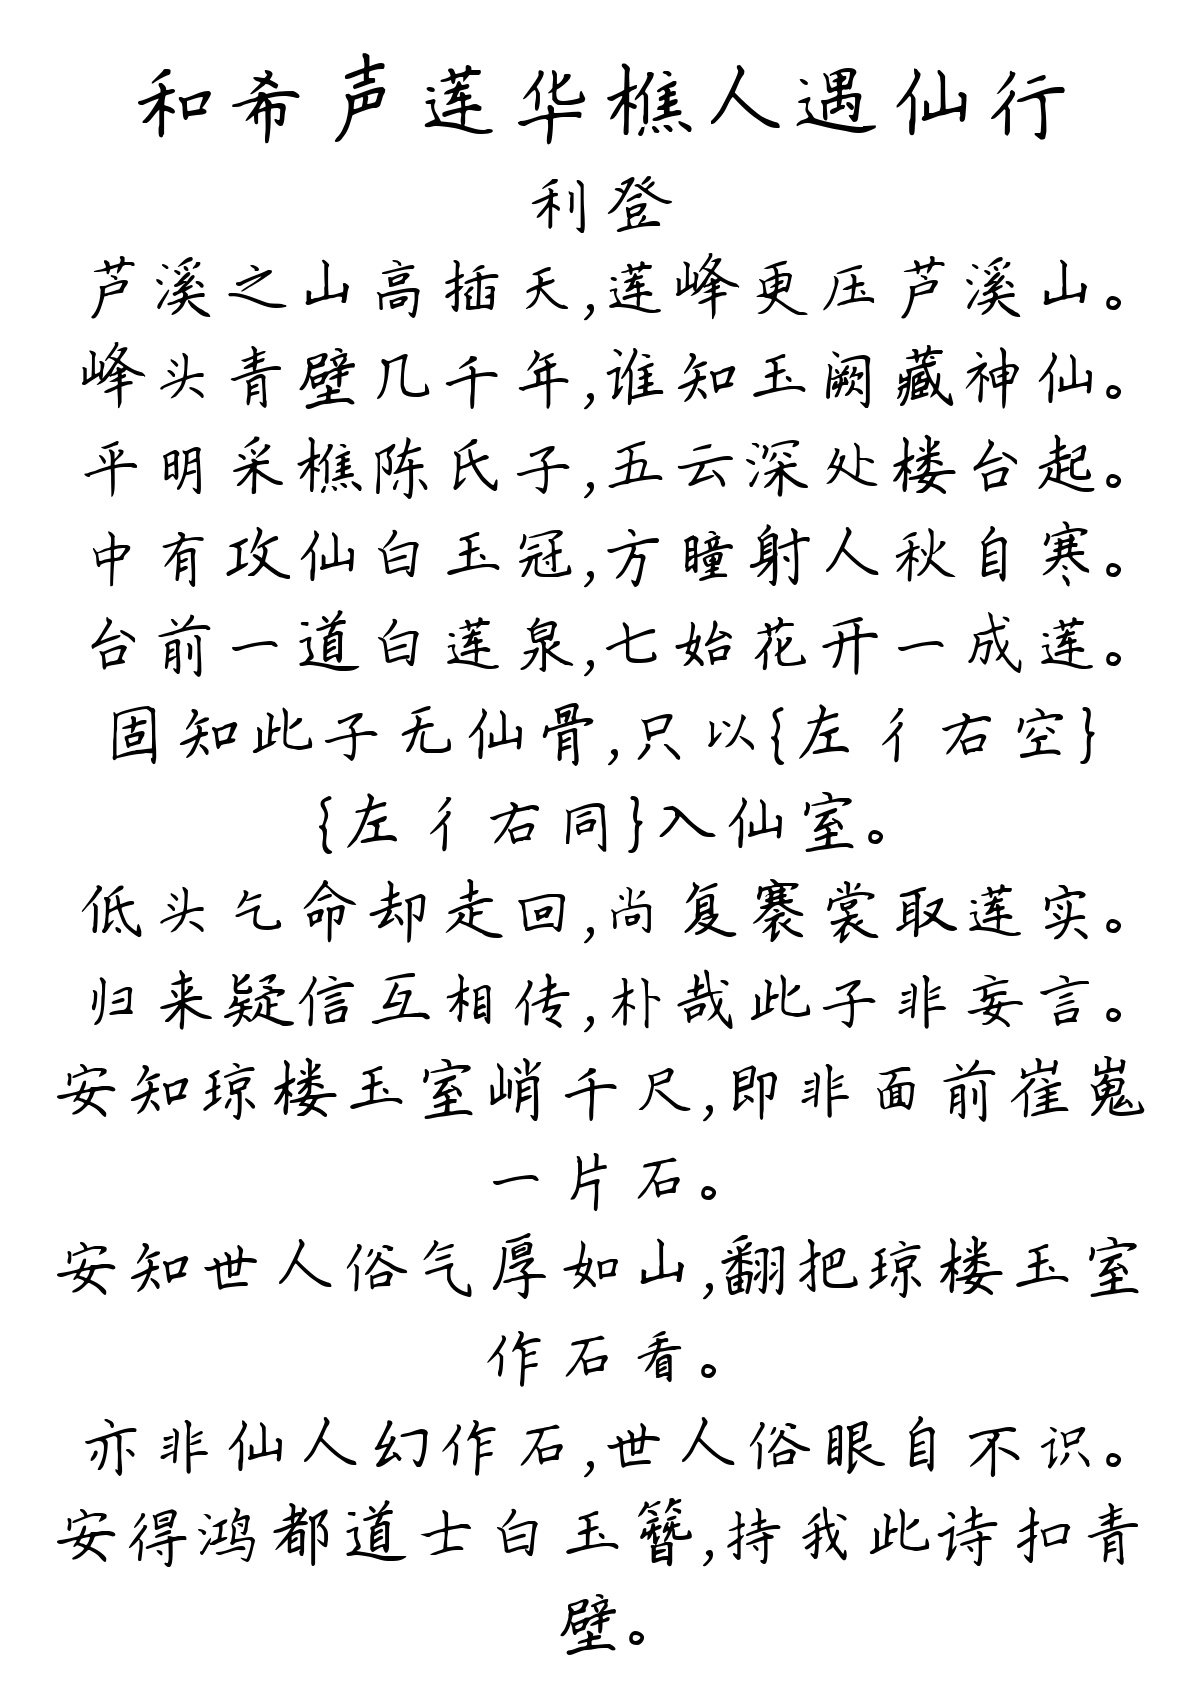 和希声莲华樵人遇仙行
利登
芦溪之山高插天,莲峰更压芦溪山。
峰头青壁几千年,谁知玉阙藏神仙。
平明采樵陈氏子,五云深处楼台起。
中有攻仙白玉冠,方瞳射人秋自寒。
台前一道白莲泉,七始花开一成莲。
固知此子无仙骨,只以{左彳右空}
{左彳右同}入仙室。
低头乞命却走回,尚复褰裳取莲实。
归来疑信互相传,朴哉此子非妄言。
安知琼楼玉室峭千尺,即非面前崔嵬
一片石。
安知世人俗气厚如山,翻把琼楼玉室
作石看。
亦非仙人幻作石,世人俗眼自不识。
安得鸿都道士白玉簪,持我此诗扣青
壁。